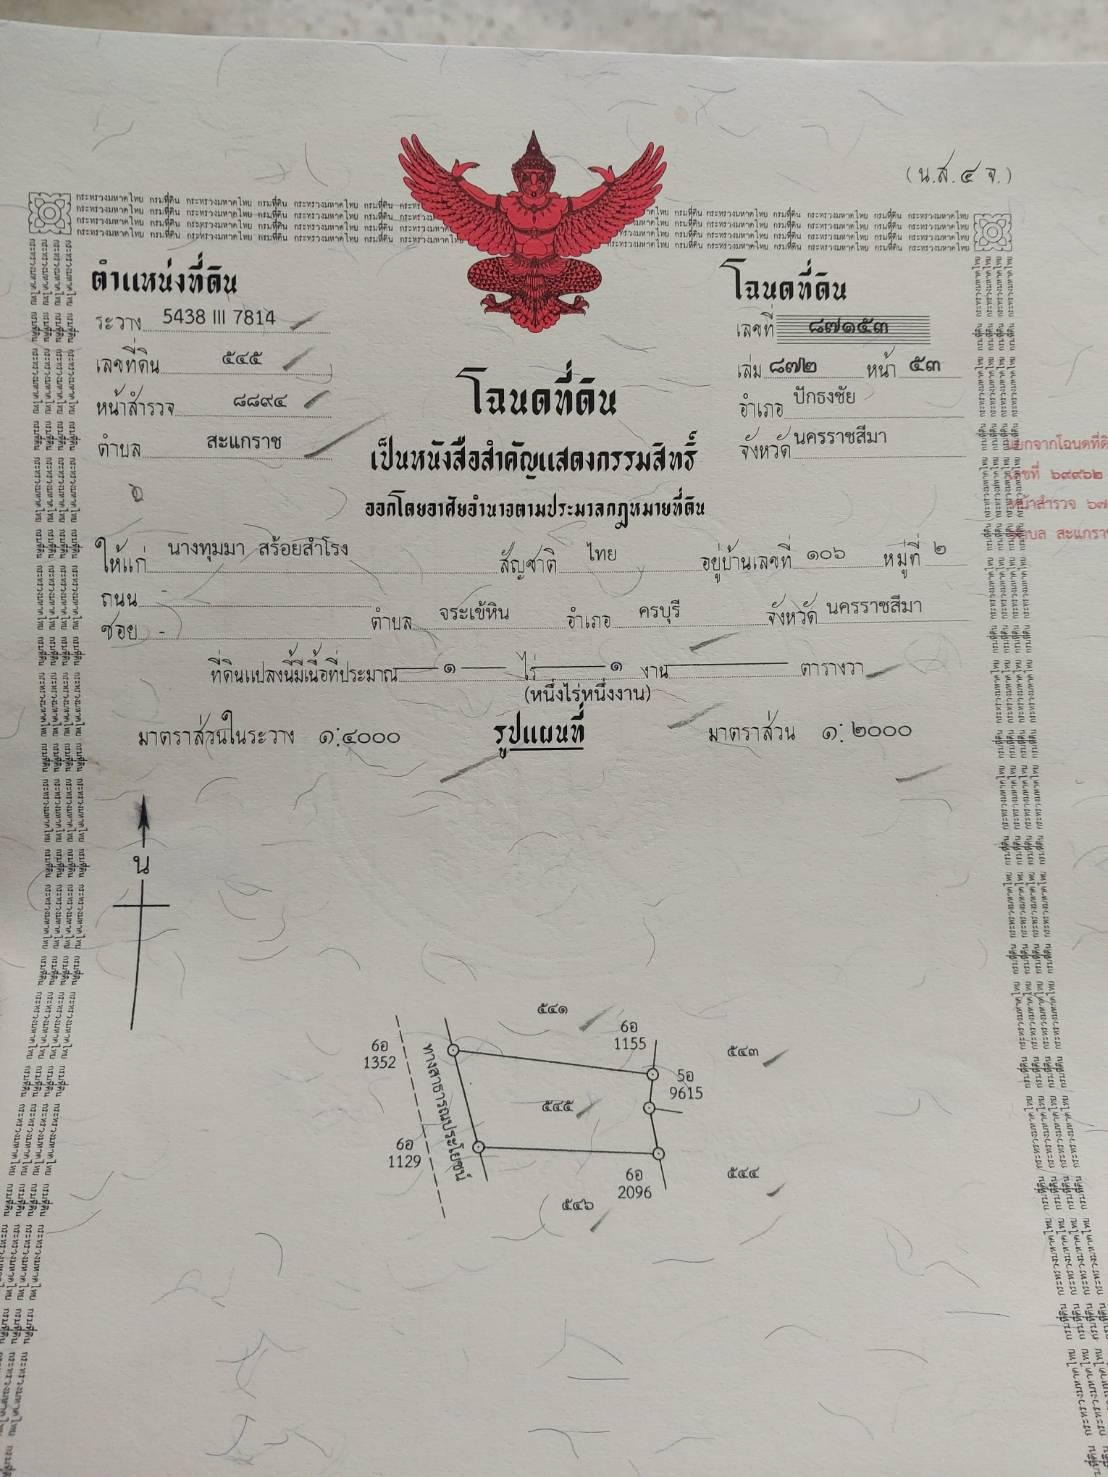 (น.ส.๔ จ.)
ตำแหน่งที่ดิน
ระวาง 5438 III 7814
เลขที่ดิน ๕๔๕
หน้าสำรวจ ๘๘๙๔
ตำบล สะแกราช
โฉนดที่ดิน
เลขที่ ๘๗๑๕๓
เล่ม ๘๗๒ หน้า ๕๓
อำเภอ ปักธงชัย
จังหวัด นครราชสีมา
โฉนดที่ดิน
เป็นหนังสือสำคัญแสดงกรรมสิทธิ์
ออกโดยอาศัยอำนาจตามประมวลกฎหมายที่ดิน
โฉนดที่ดิ
เลขที่ ๖๙๙๖๒
หน้าสำรวจ ๖๗
สะแกรา
ให้แก่ นางทุมมา สร้อยสำโรง สัญชาติ ไทย อยู่บ้านเลขที่ ๑๐๖ หมู่ที่ ๒
ถนน -
ซอย - ตำบล จระเข้หิน อำเภอ ครบุรี จังหวัด นครราชสีมา
ที่ดินแปลงนี้มีเนื้อที่ประมาณ ๑ ไร่ ๑ งาน ตารางวา
(หนึ่งไร่หนึ่งงาน)
มาตราส่วนในระวาง ๑:๔๐๐๐ รูปแผนที่ มาตราส่วน ๑:๒๐๐๐
น
๕๔๑
6อ
1155
6อ
1352
๕๔๓
5อ
9615
ทางสาธารณประโยชน์
๕๔๕
6อ
1129
6อ
2096
๕๔๔
๕๔๖
กระทรวงมหาดไทย กรมที่ดิน กระทรวงมหาดไทย กรมที่ดิน กระทรวงมหาดไทย กรมที่ดิน